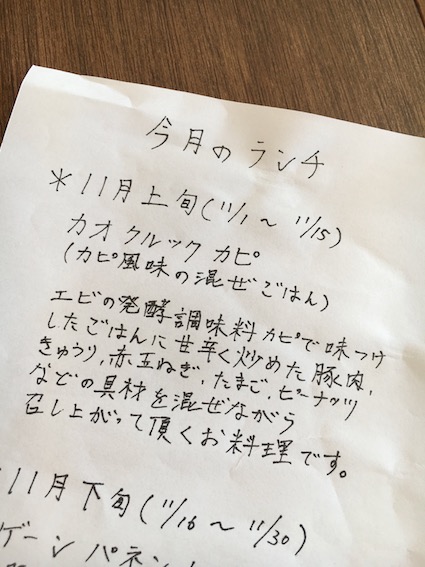 今月のランチ
*11月上旬(11/1〜11/15)
カオクルックカピ
(カピ風味の混ぜごはん)
エビの発酵調味料カピで味つけ
したごはんに甘辛く炒めた豚肉,
きゅうり,赤玉ねぎ,たまご,ピーナッツ
などの具材を混ぜながら
召し上がって頂くお料理です。
11月下旬(11/16〜11/30)
ゲーンパネン